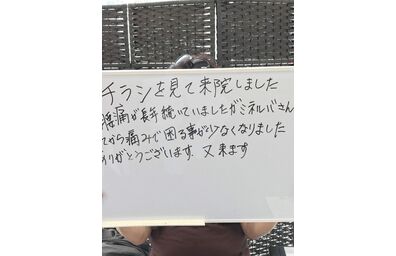 チラシを見て来院しました
腰痛が長年続いていましたがミネルバさん
てから痛みで困る事が少なくなりました
ありがとうございます。又来ます